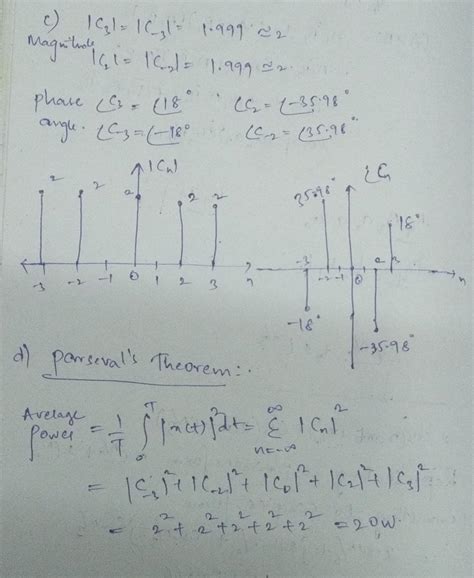 c) |C₃| = |C₋₃| = 1.999 ≈ 2
Magnitude
|C₂| = |C₋₂| = 1.999 ≈ 2
phase ∠C₃ = ∠18° ∠C₂ = ∠-35.98°
angle. ∠C₋₃ = ∠-18° ∠C₋₂ = ∠35.98°
|Cₙ|
2 2 2 2 2
-3 -2 -1 0 1 2 3 n
∠Cₙ
35.98°
18°
-3 -2 -1 0 2 3 n
-18°
-35.98°
d) Parseval's Theorem:.
Average
power = 1/T ∫₀ᵀ |x(t)|² dt = Σ n=-∞ ∞ |Cₙ|²
= |C₋₃|² + |C₋₂|² + |C₀|² + |C₂|² + |C₃|²
= 2² + 2² + 2² + 2² + 2² = 20W.